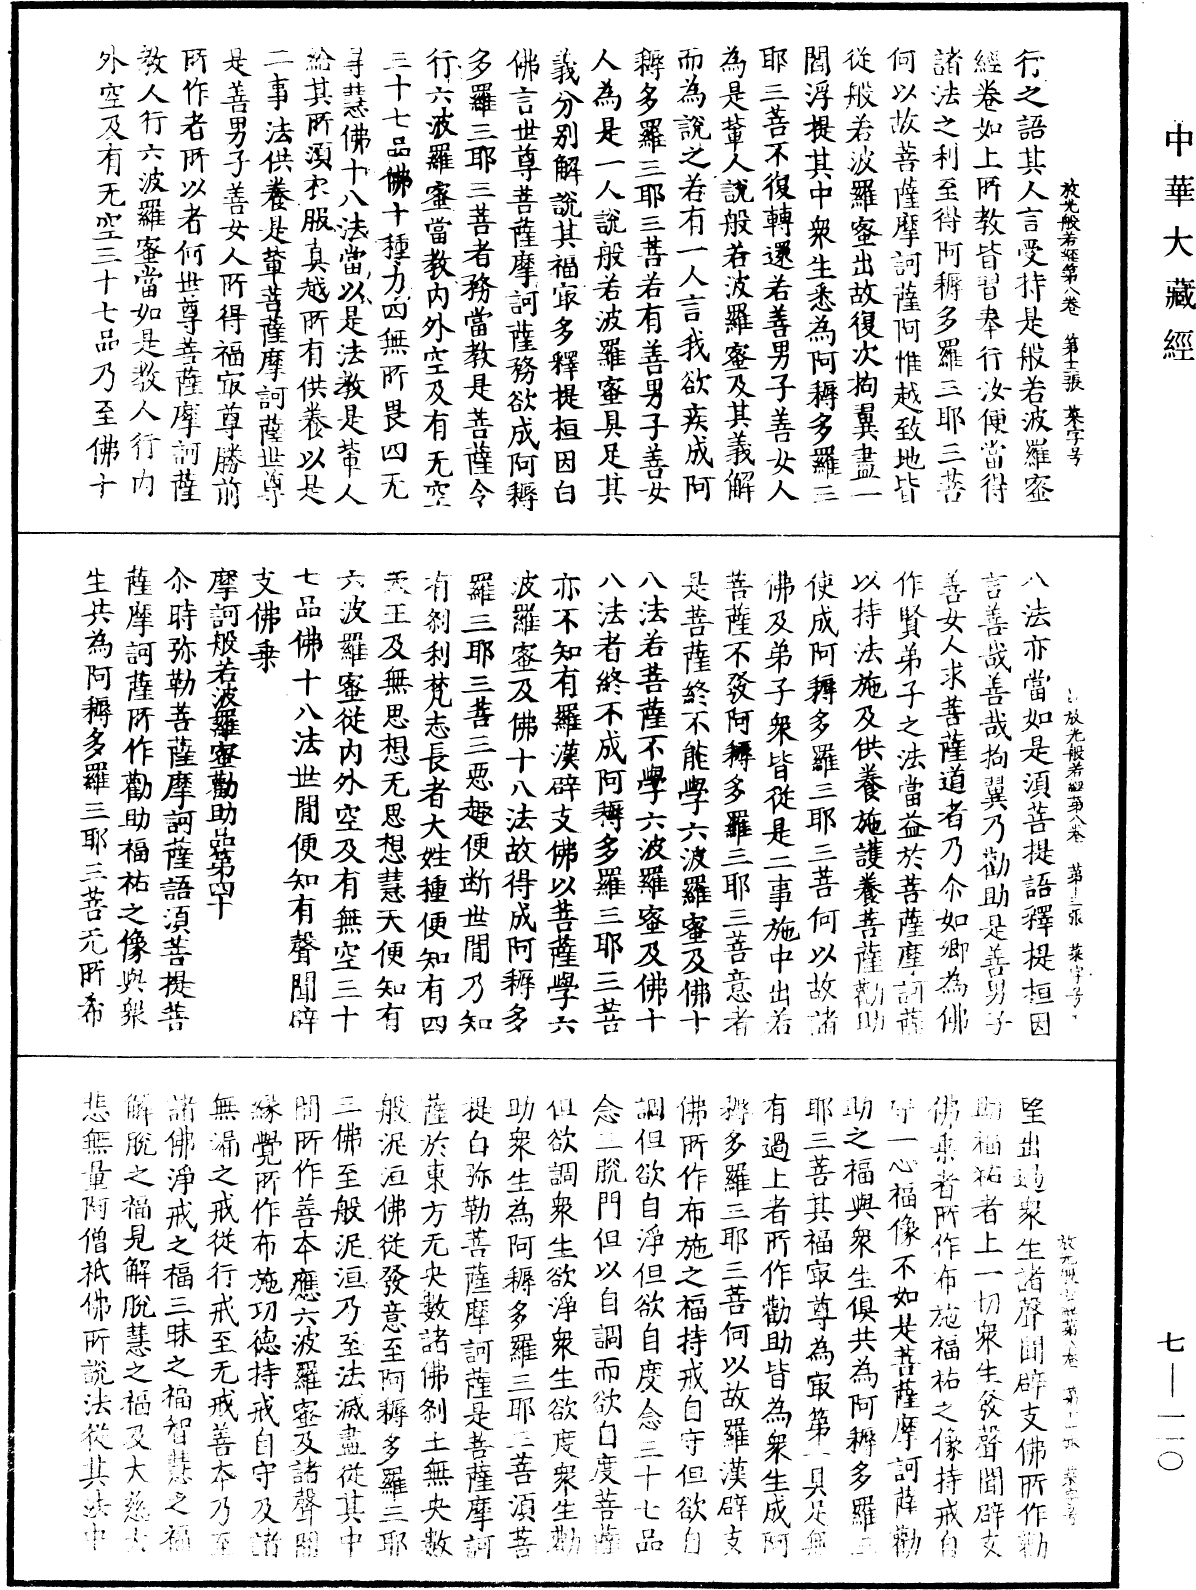 中華大藏經
放光般若經第八卷 第十一張 菜字号
行之語其人言受持是般若波羅蜜
經卷如上所教皆習奉行汝便當得
諸法之利至得阿耨多羅三耶三菩
何以故菩薩摩訶薩阿惟越致地皆
從般若波羅蜜出故復次拘翼盡一
閻浮提其中衆生悉為阿耨多羅三
耶三菩不復轉還若善男子善女人
為是輩人說般若波羅蜜及其義解
而為說之若有一人言我欲疾成阿
耨多羅三耶三菩若有善男子善女
人為是一人說般若波羅蜜具足其
義分別解說其福㝡多釋提桓因白
佛言世尊菩薩摩訶薩務欲成阿耨
多羅三耶三菩者務當教是菩薩令
行六波羅蜜當教內外空及有无空
三十七品佛十種力四無所畏四无
㝵慧佛十八法當以是法教是輩人
給其所湏衣服具越所有供養以是
二事法供養是輩菩薩摩訶薩世尊
是善男子善女人所得福㝡尊勝前
所作者所以者何世尊菩薩摩訶薩
教人行六波羅蜜當如是教人行內
外空及有无空三十七品乃至佛十
放光般若經第八卷 第十二張 菜字号
八法亦當如是湏菩提語釋提桓因
言善哉善哉拘翼乃勸助是善男子
善女人求菩薩道者乃尒如卿為佛
作賢弟子之法當益於菩薩摩訶薩
以持法施及供養施護養菩薩勸助
使成阿耨多羅三耶三菩何以故諸
佛及弟子衆皆從是二事施中出若
菩薩不發阿耨多羅三耶三菩意者
是菩薩終不能學六波羅蜜及佛十
八法若菩薩不學六波羅蜜及佛十
八法者終不成阿耨多羅三耶三菩
亦不知有羅漢辟支佛以菩薩學六
波羅蜜及佛十八法故得成阿耨多
羅三耶三菩三惡趣便断世間乃知
有刹利梵志長者大姓種便知有四
天王及無思想无思想慧天便知有
六波羅蜜從內外空及有無空三十
七品佛十八法世間便知有聲聞辟
支佛乘
摩訶般若波羅蜜勸助品第四十
尒時弥勒菩薩摩訶薩語湏菩提菩
薩摩訶薩所作勸助福祐之像與衆
生共為阿耨多羅三耶三菩无所希
放光般若經第八卷 第十三張 菜字号
望出過衆生諸聲聞辟支佛所作勸
助福祐者上一切衆生發聲聞辟支
佛乘者所作布施福祐之像持戒自
守一心福像不如是菩薩摩訶薩勸
助之福與衆生俱共為阿耨多羅三
耶三菩其福㝡尊為㝡第一具足無
有過上者所作勸助皆為衆生成阿
耨多羅三耶三菩何以故羅漢辟支
佛所作布施之福持戒自守但欲自
調但欲自淨但欲自度念三十七品
念三脫門但以自調而欲自度菩薩
但欲調衆生欲淨衆生欲度衆生勸
助衆生為阿耨多羅三耶三菩湏菩
提白弥勒菩薩摩訶薩是菩薩摩訶
薩於東方无央數諸佛刹土無央數
般泥洹佛從發意至阿耨多羅三耶
三佛至般泥洹乃至法滅盡從其中
間所作善本應六波羅蜜及諸聲聞
緣覺所作布施功德持戒自守及諸
無漏之戒從行戒至无戒善本乃至
諸佛淨戒之福三昧之福智慧之福
解脫之福見解脫慧之福及大慈大
悲無量阿僧祇佛所說法從其法中
七—一一〇